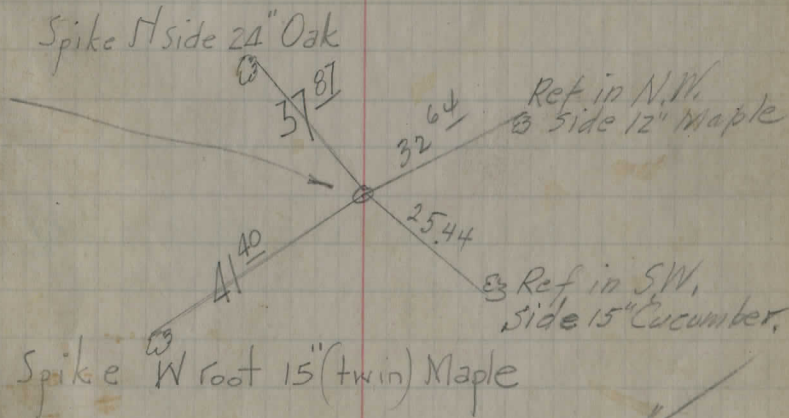 Spike N side 24" Oak
37 87
32 64
Ref in N.W.
side 12" Maple
25.44
41 40
Ref in S.W.
Side 15" Cucumber.
Spike W root 15" (twin) Maple